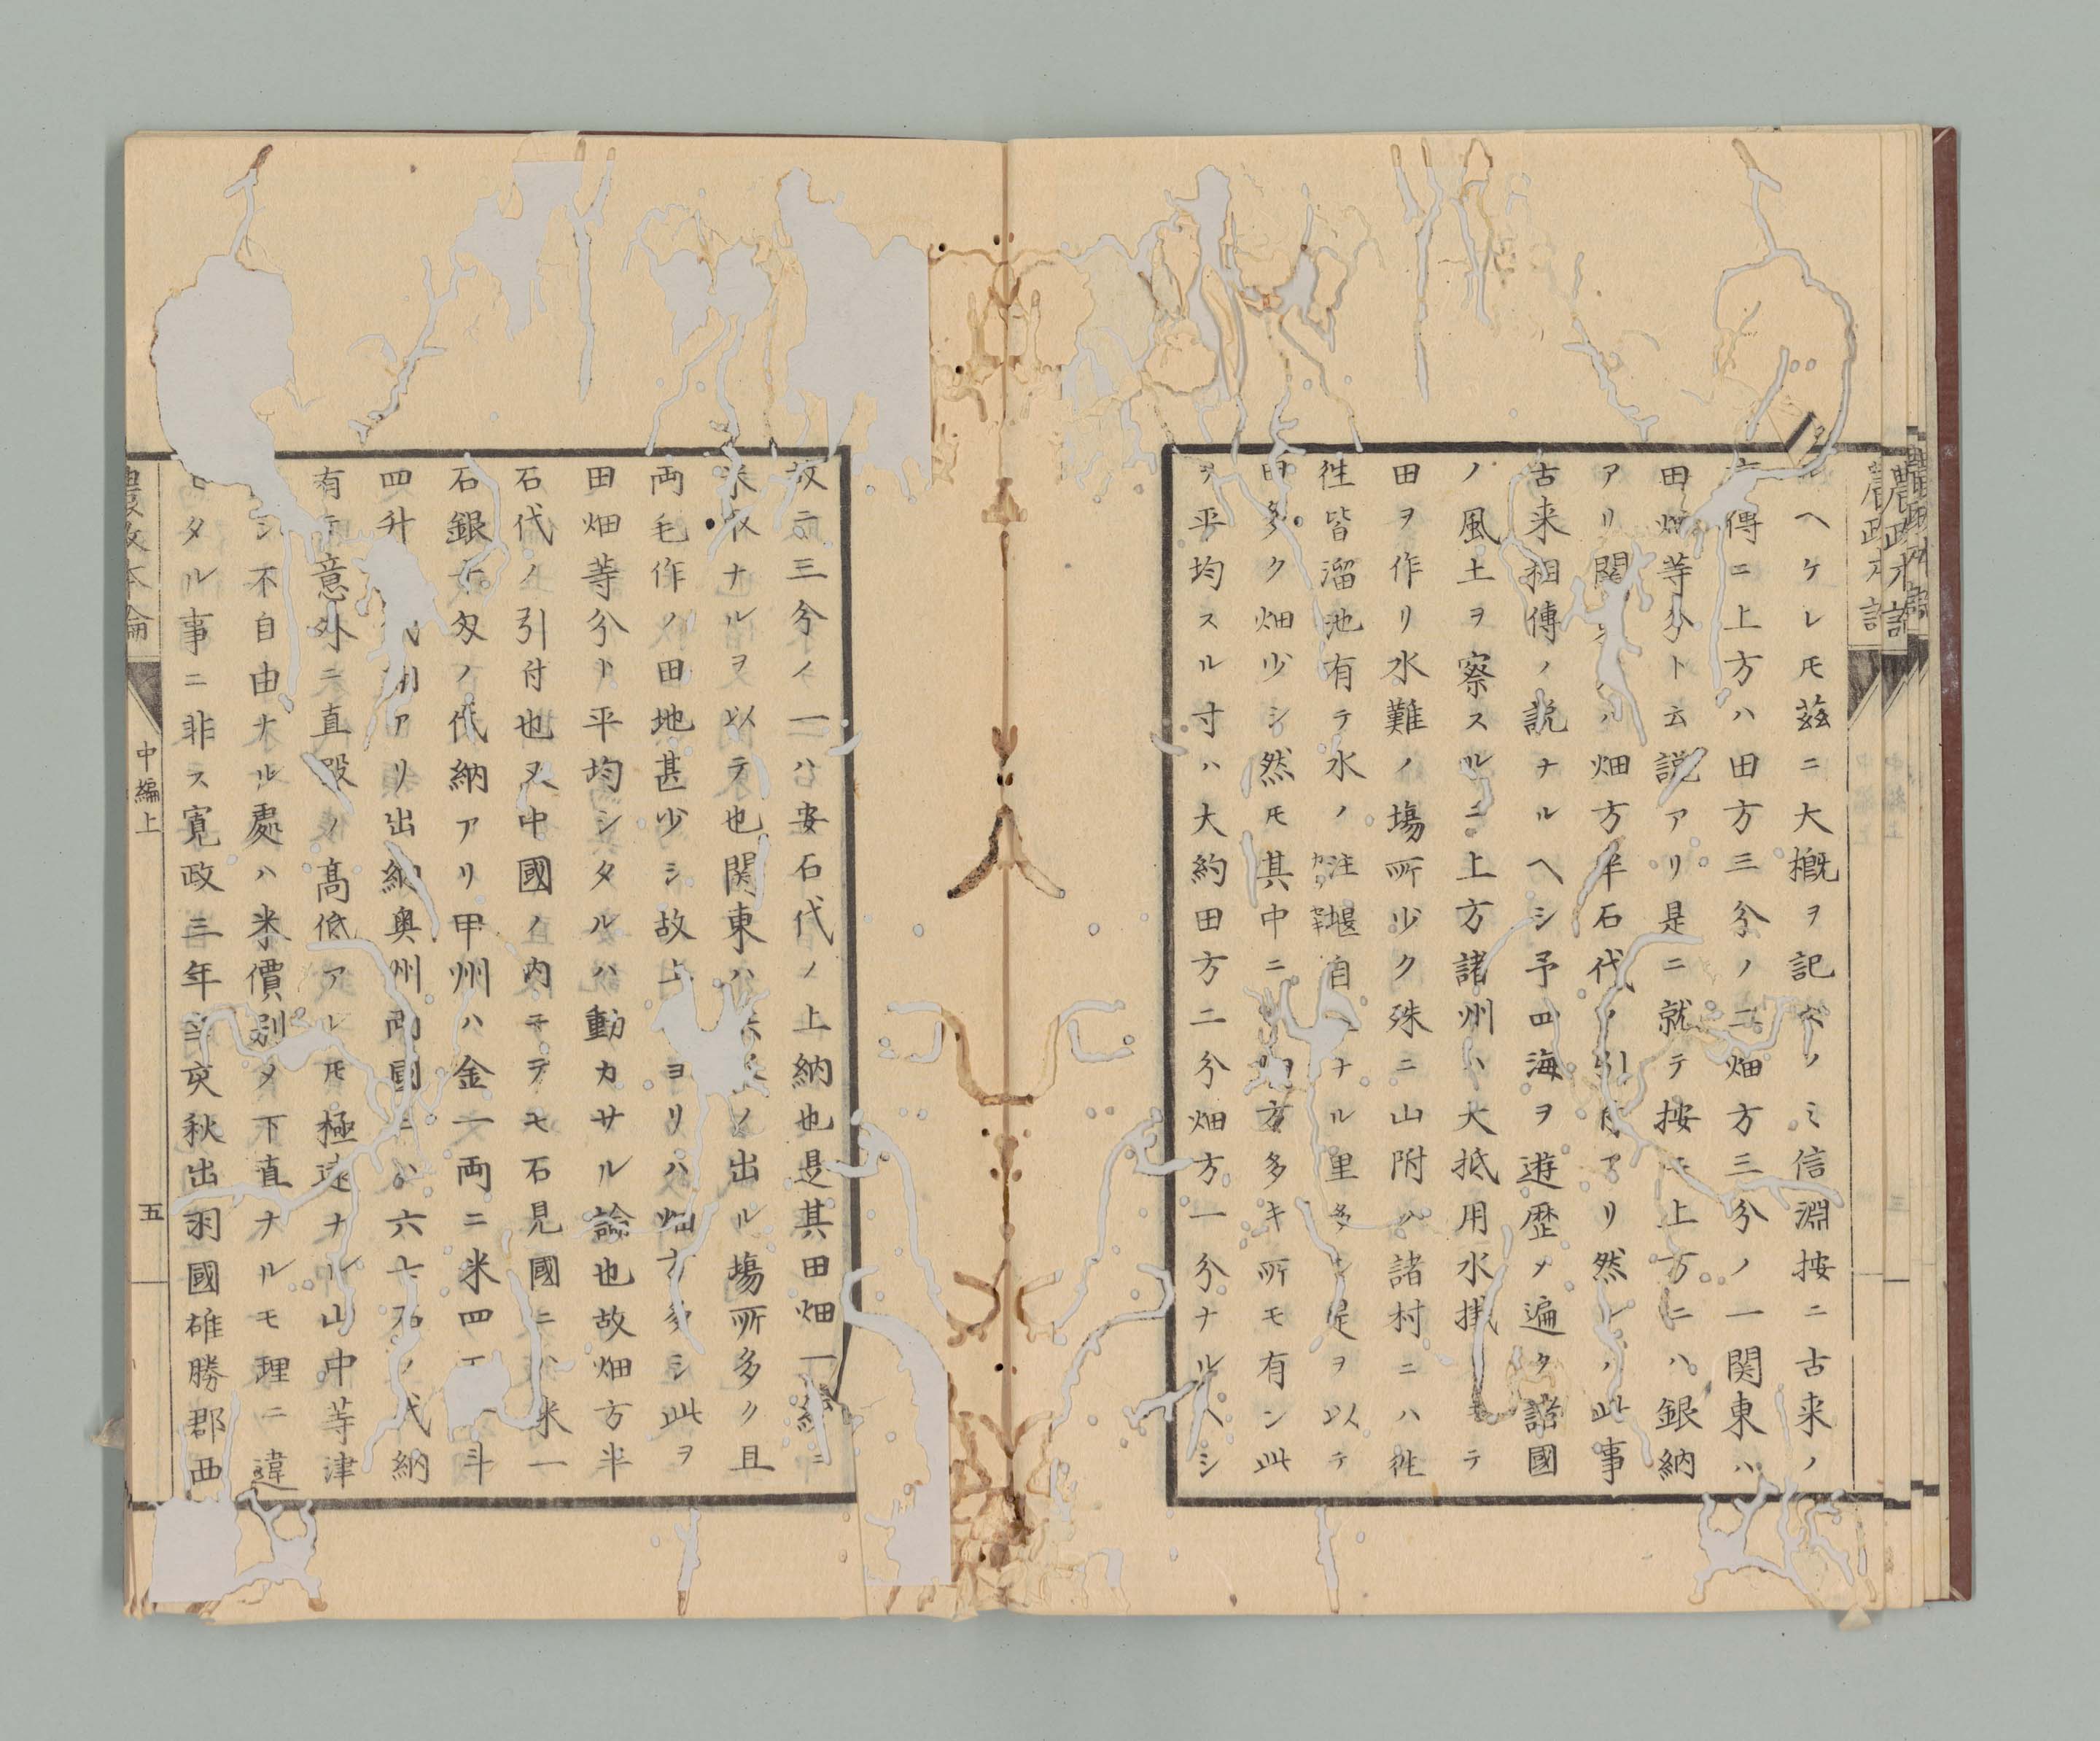 ヘケレ𪜈茲ニ大概ヲ記スノミ信淵按ニ古来ノ
傳ニ上方ハ田方三分ノ二畑方三分ノ一関東ハ
田畑等分ト云説アリ是ニ就テ按モ上方ニハ銀納
アリ関東ハ畑方半石代ノ引付アリ然レハ此事
古来相傳ノ説ナルヘシ予四海ヲ遊歴メ遍ク諸國
ノ風土ヲ察スルニ上方諸州ハ大抵用水掛モテ
田ヲ作リ水難ノ場所少ク殊ニ山附ノ諸村ニハ徃
徃皆溜池有テ水ノ注堰自ナル里多シ是ヲ以テ
田多ク畑少シ然𪜈其中ニ畑方多キ所モ有ン此
ヲ平均スル寸ハ大約田方二分畑方一分ナルヘシ
故ニ三分ノ一ハ安石代ノ上納也是其田畑一縄ニ
米取ナルヲ以テ也関東ハノ出ル場所多ク且
両毛作ノ田地甚少シ故上ヨリハ畑方多シ此ヲ
田畑等分ト平均シタルハ動カサル論也故畑方半
石代ノ引付也又中國ノ内ニテモ石見國ニハ米一
石銀匁ノ代納アリ甲州ハ金一両ニ米四斗
四升アリ出納奥州両國ニハ六七石ノ代納
有テ意外ニ直段ノ高低アレ𪜈極遠ナル山中等津
シ不自由ナル處ハ米價別メ下直ナルモ理ニ違
タル事ニ非ス寛政三年辛亥秋出羽國雄勝郡西
農政本論
中編上
五